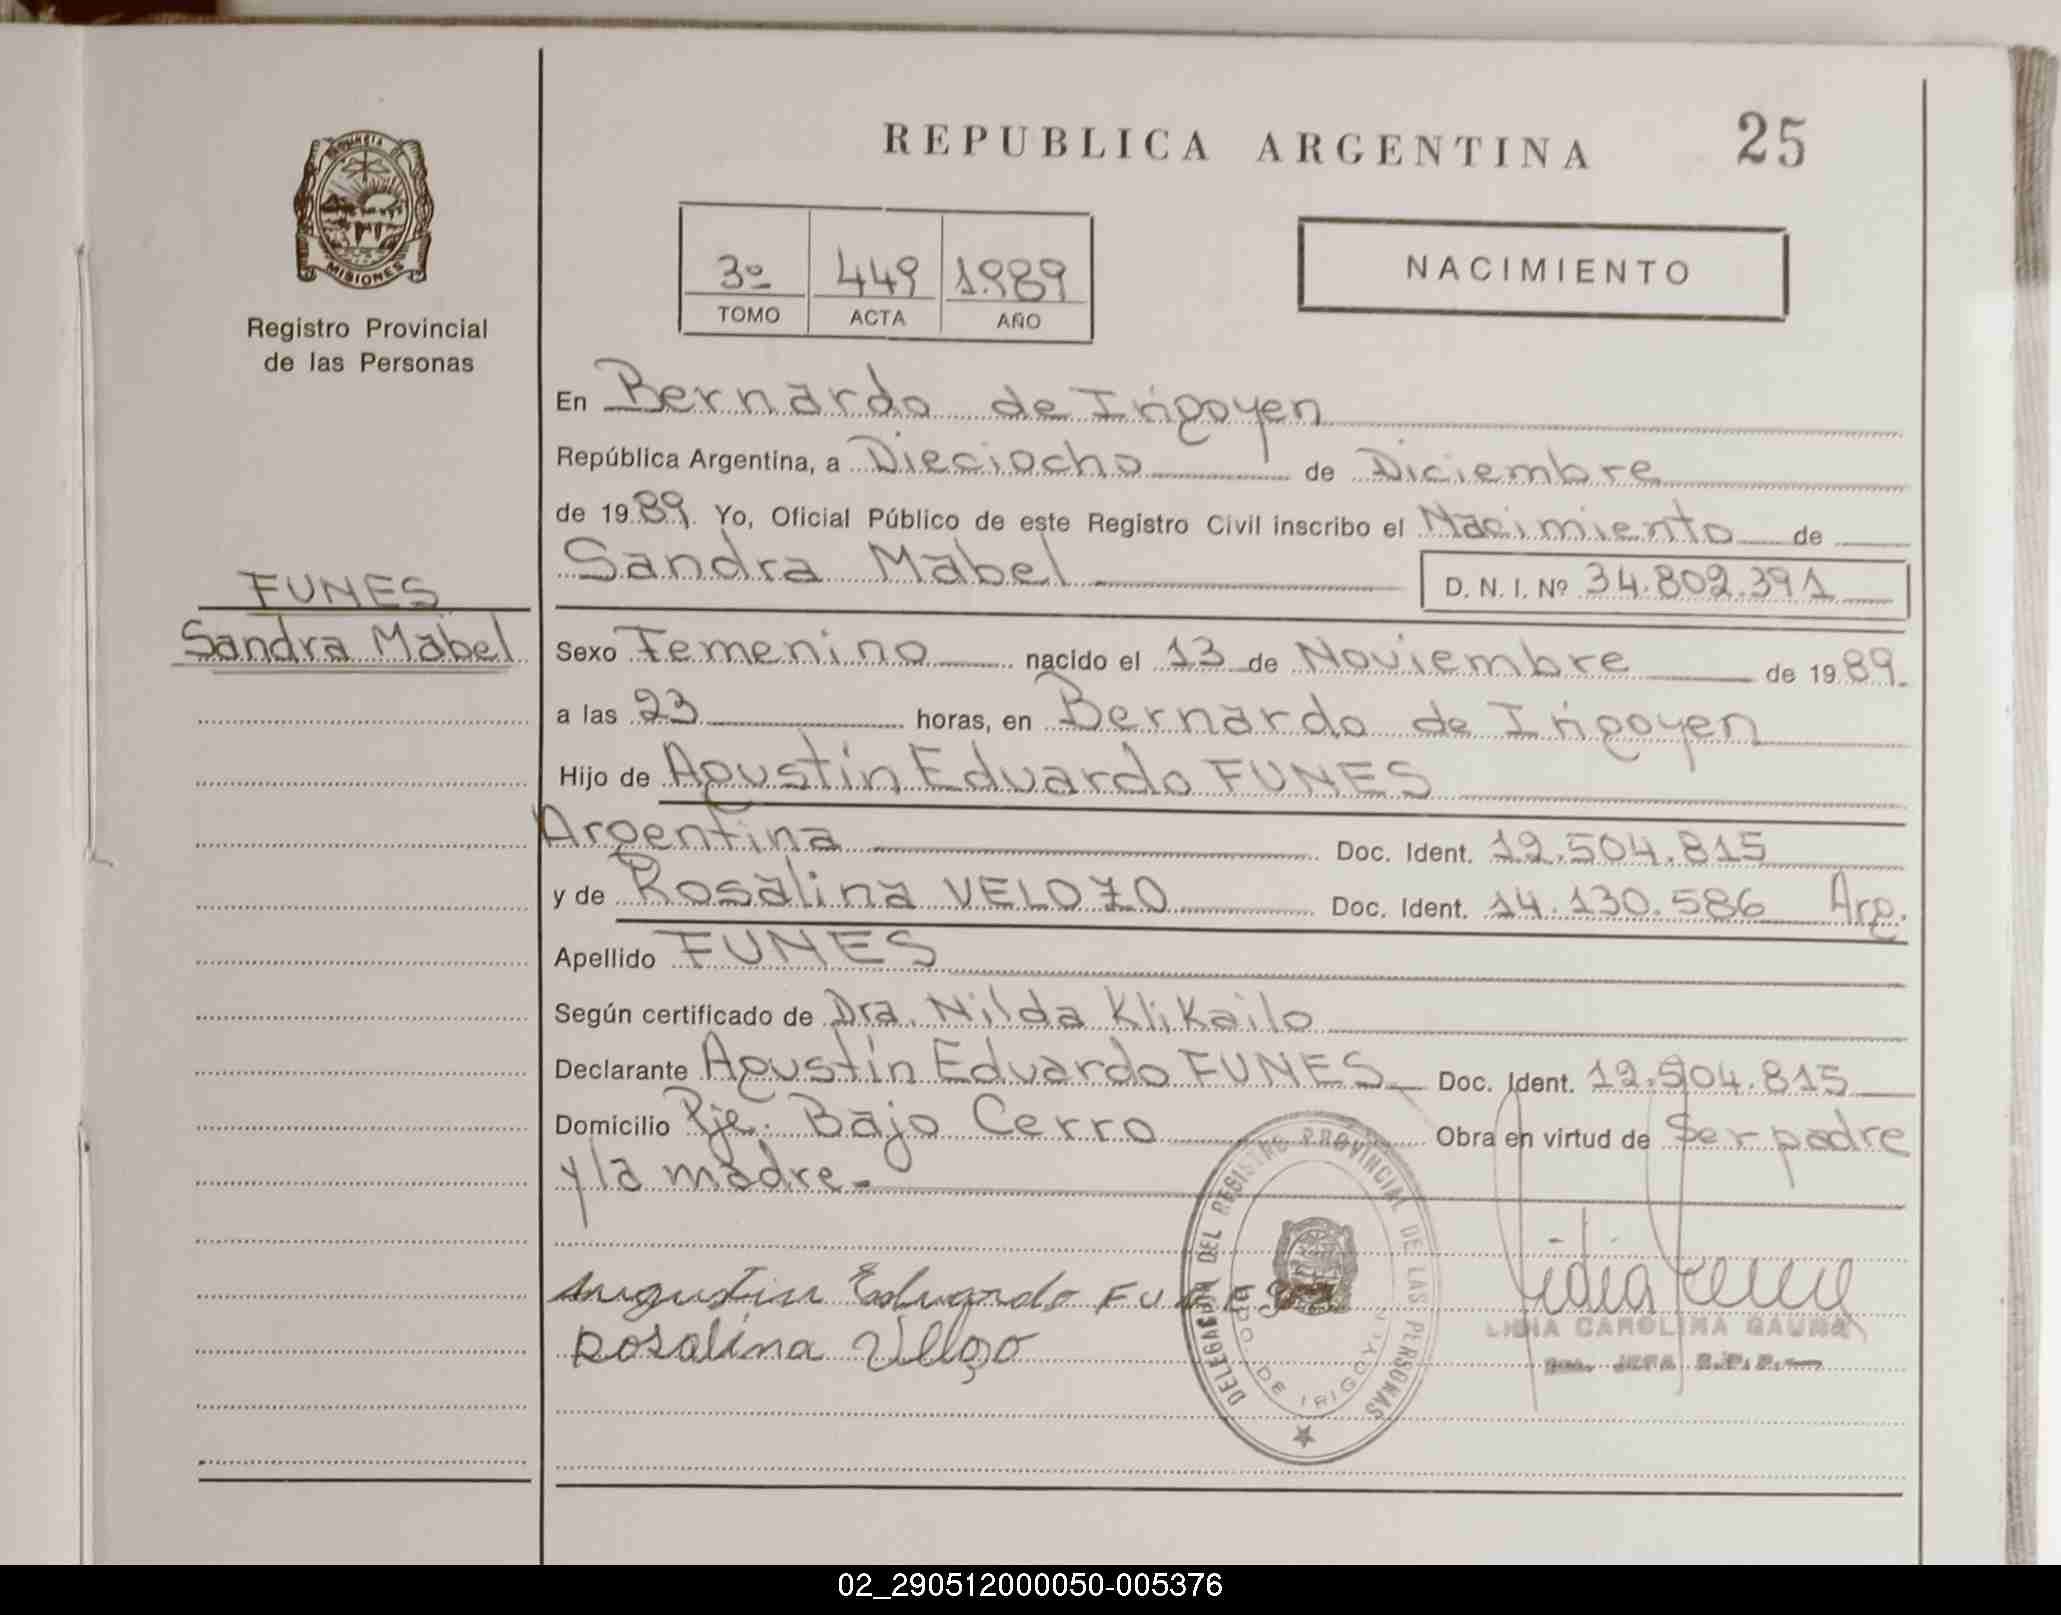 REPUBLICA ARGENTINA
25
PROVINCIA DE
MISIONES
Registro Provincial
de las Personas
3º 449 1.989
TOMO ACTA AÑO
NACIMIENTO
En Bernardo de Irigoyen
República Argentina, a Dieciocho de Diciembre
de 1989. Yo, Oficial Público de este Registro Civil inscribo el Nacimiento de
Sandra Mabel D. N. I. Nº 34.802.391
FUNES
Sandra Mabel
Sexo Femenino nacido el 13 de Noviembre de 1989.
a las 23 horas, en Bernardo de Irigoyen
Hijo de Agustin Eduardo FUNES
Argentina Doc. Ident. 12.504.815
y de Rosalina VELOZO Doc. Ident. 14.130.586 Arg.
Apellido FUNES
Según certificado de Dra. Nilda KliKailo
Declarante Agustin Eduardo FUNES Doc. Ident. 12.504.815
Domicilio Pje. Bajo Cerro Obra en virtud de Ser padre
y la madre.-
DELEGACIÓN DEL REGISTRO PROVINCIAL DE LAS PERSONAS
BDO. DE IRIGOYEN
Augustin Eduardo FUNES
Rosalina Velozo
LIDIA CAROLINA GAUNA
JEFA R.P.P.
02_290512000050-005376